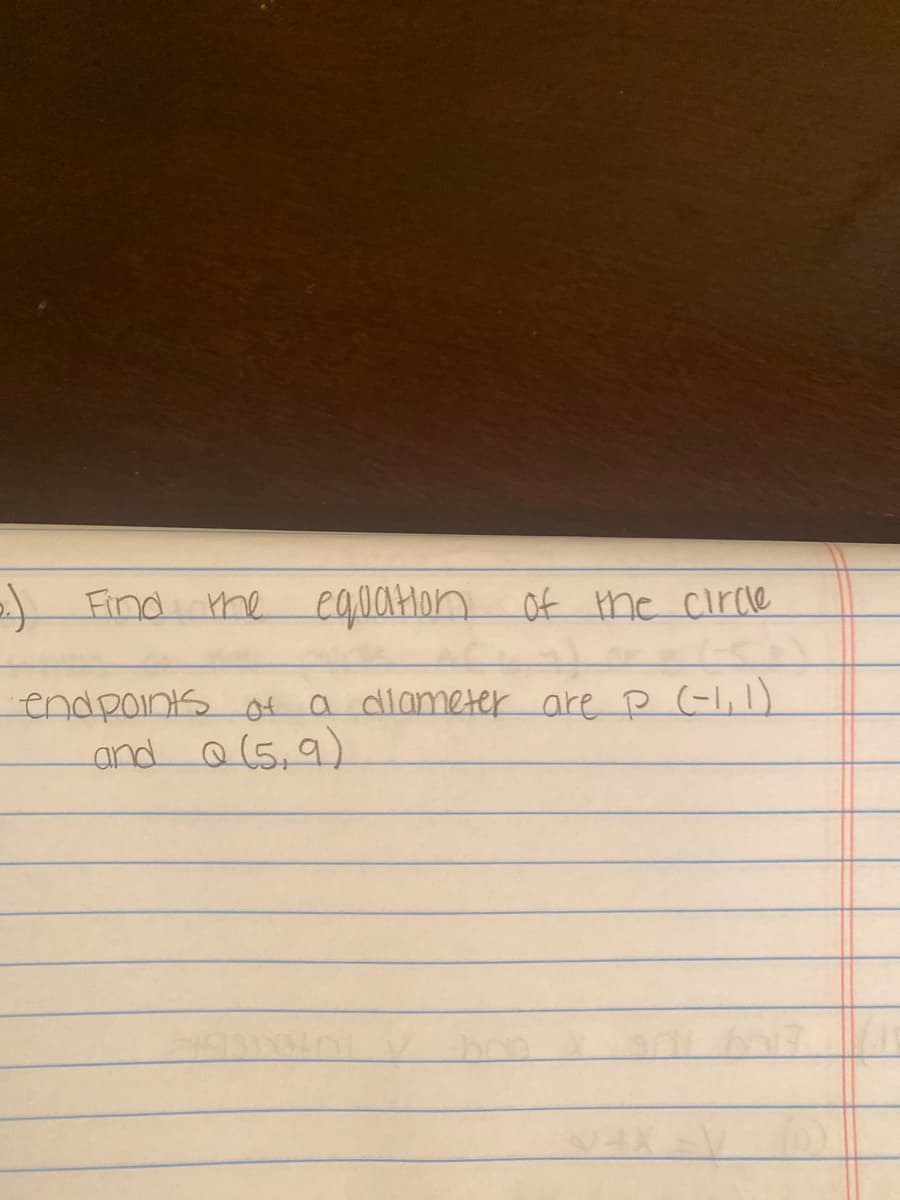 .) Find the equation of the circle
endpoints of a diameter are P (-1, 1)
and Q (5, 9)